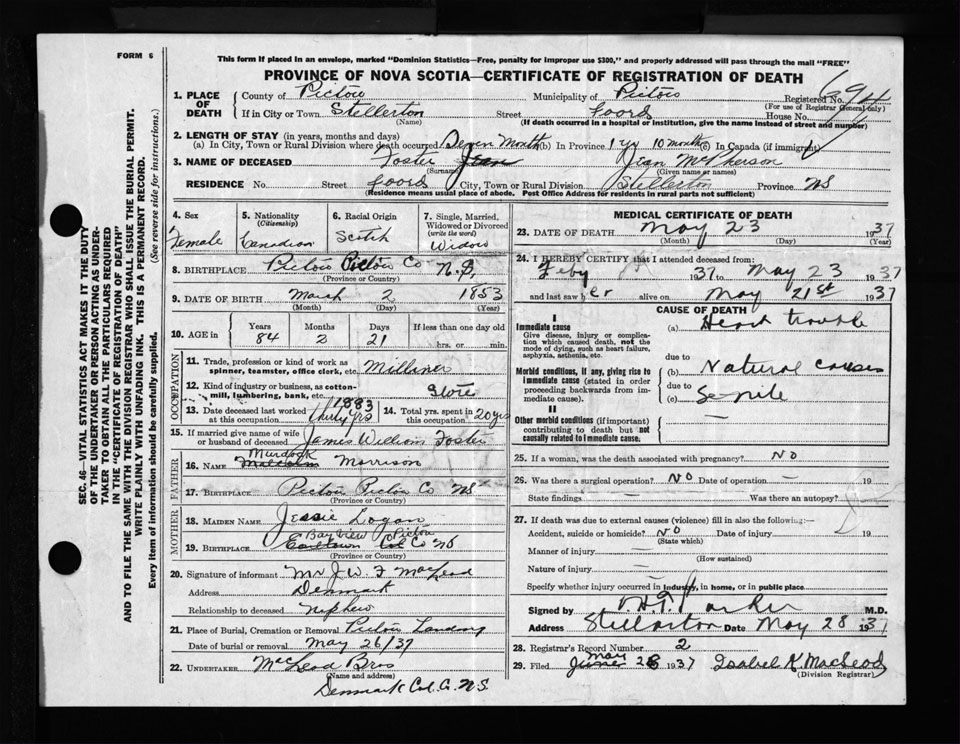 FORM 6
This form if placed in an envelope, marked "Dominion Statistics—Free, penalty for improper use $300," and properly addressed will pass through the mail "FREE"
PROVINCE OF NOVA SCOTIA—CERTIFICATE OF REGISTRATION OF DEATH
1. PLACE OF DEATH
County of Pictou Municipality of Pictou Registered No. 694
(For use of Registrar General only)
If in City or Town Stellerton Street Foords House No.
(Name) (If death occurred in a hospital or institution, give the name instead of street and number)
2. LENGTH OF STAY (in years, months and days)
(a) In City, Town or Rural Division where death occurred Seven Month (b) In Province 1 yr 10 month (c) In Canada (if immigrant)
3. NAME OF DECEASED Foster Jean Jean McPherson
(Surname) (Given name or names)
RESIDENCE No. Street Foords City, Town or Rural Division Stellerton Province NS
(Residence means usual place of abode. Post Office Address for residents in rural parts not sufficient)
SEC. 46—VITAL STATISTICS ACT MAKES IT THE DUTY
OF THE UNDERTAKER OR PERSON ACTING AS UNDER-
TAKER TO OBTAIN ALL THE PARTICULARS REQUIRED
IN THE "CERTIFICATE OF REGISTRATION OF DEATH"
AND TO FILE THE SAME WITH THE DIVISION REGISTRAR WHO SHALL ISSUE THE BURIAL PERMIT.
WRITE PLAINLY WITH UNFADING INK. THIS IS A PERMANENT RECORD.
Every item of information should be carefully supplied. (See reverse side for instructions.)
4. Sex
Female
5. Nationality
(Citizenship)
Canadian
6. Racial Origin
Scotch
7. Single, Married, Widowed or Divorced
(write the word)
Widow
8. BIRTHPLACE Pictou Pictou Co N.S,
(Province or Country)
9. DATE OF BIRTH March 2 1853
(Month) (Day) (Year)
10. AGE in
Years Months Days If less than one day old
84 2 21 hrs. or min.
OCCUPATION
11. Trade, profession or kind of work as
spinner, teamster, office clerk, etc. Milliner
12. Kind of industry or business, as cotton-
mill, lumbering, bank, etc. Store
13. Date deceased last worked at this occupation 1883 thirty yrs
14. Total yrs. spent in this occupation 20 yrs
15. If married give name of wife
or husband of deceased James William Foster
FATHER
16. NAME Murdock Malcolm Morrison
17. BIRTHPLACE Pictou Pictou Co NS
(Province or Country)
MOTHER
18. MAIDEN NAME Jessie Logan
Bayview Pictou
19. BIRTHPLACE Earltown Col Co NS
(Province or Country)
20. Signature of informant Mr J W F MacLeod
Address Denmark
Relationship to deceased Nephew
21. Place of Burial, Cremation or Removal Pictou Landing
Date of burial or removal May 26/37
22. UNDERTAKER MacLeod Bros
(Name and address)
Denmark Col. Co. N.S.
MEDICAL CERTIFICATE OF DEATH
23. DATE OF DEATH May 23 1937
(Month) (Day) (Year)
24. I HEREBY CERTIFY that I attended deceased from:
Feby 37 to May 23 1937
and last saw her alive on May 21st 1937
CAUSE OF DEATH
I
Immediate cause
Give disease, injury or complication which caused death, not the mode of dying, such as heart failure, asphyxia, asthenia, etc.
(a) Heart trouble
due to
Morbid conditions, if any, giving rise to immediate cause (stated in order proceeding backwards from immediate cause).
(b) Natural causes
due to
(c) Senile
II
Other morbid conditions (if important) contributing to death but not causally related to immediate cause.
25. If a woman, was the death associated with pregnancy? No
26. Was there a surgical operation? No Date of operation — 19
State findings — Was there an autopsy?
27. If death was due to external causes (violence) fill in also the following:—
Accident, suicide or homicide? No Date of injury 19
(State which)
Manner of injury —
(How sustained)
Nature of injury —
Specify whether injury occurred in industry, in home, or in public place
Signed by Parker M.D.
Address Stellarton Date May 28 1937
28. Registrar's Record Number 2
29. Filed May June 28 1937 Isabel K. MacLeod
(Division Registrar)